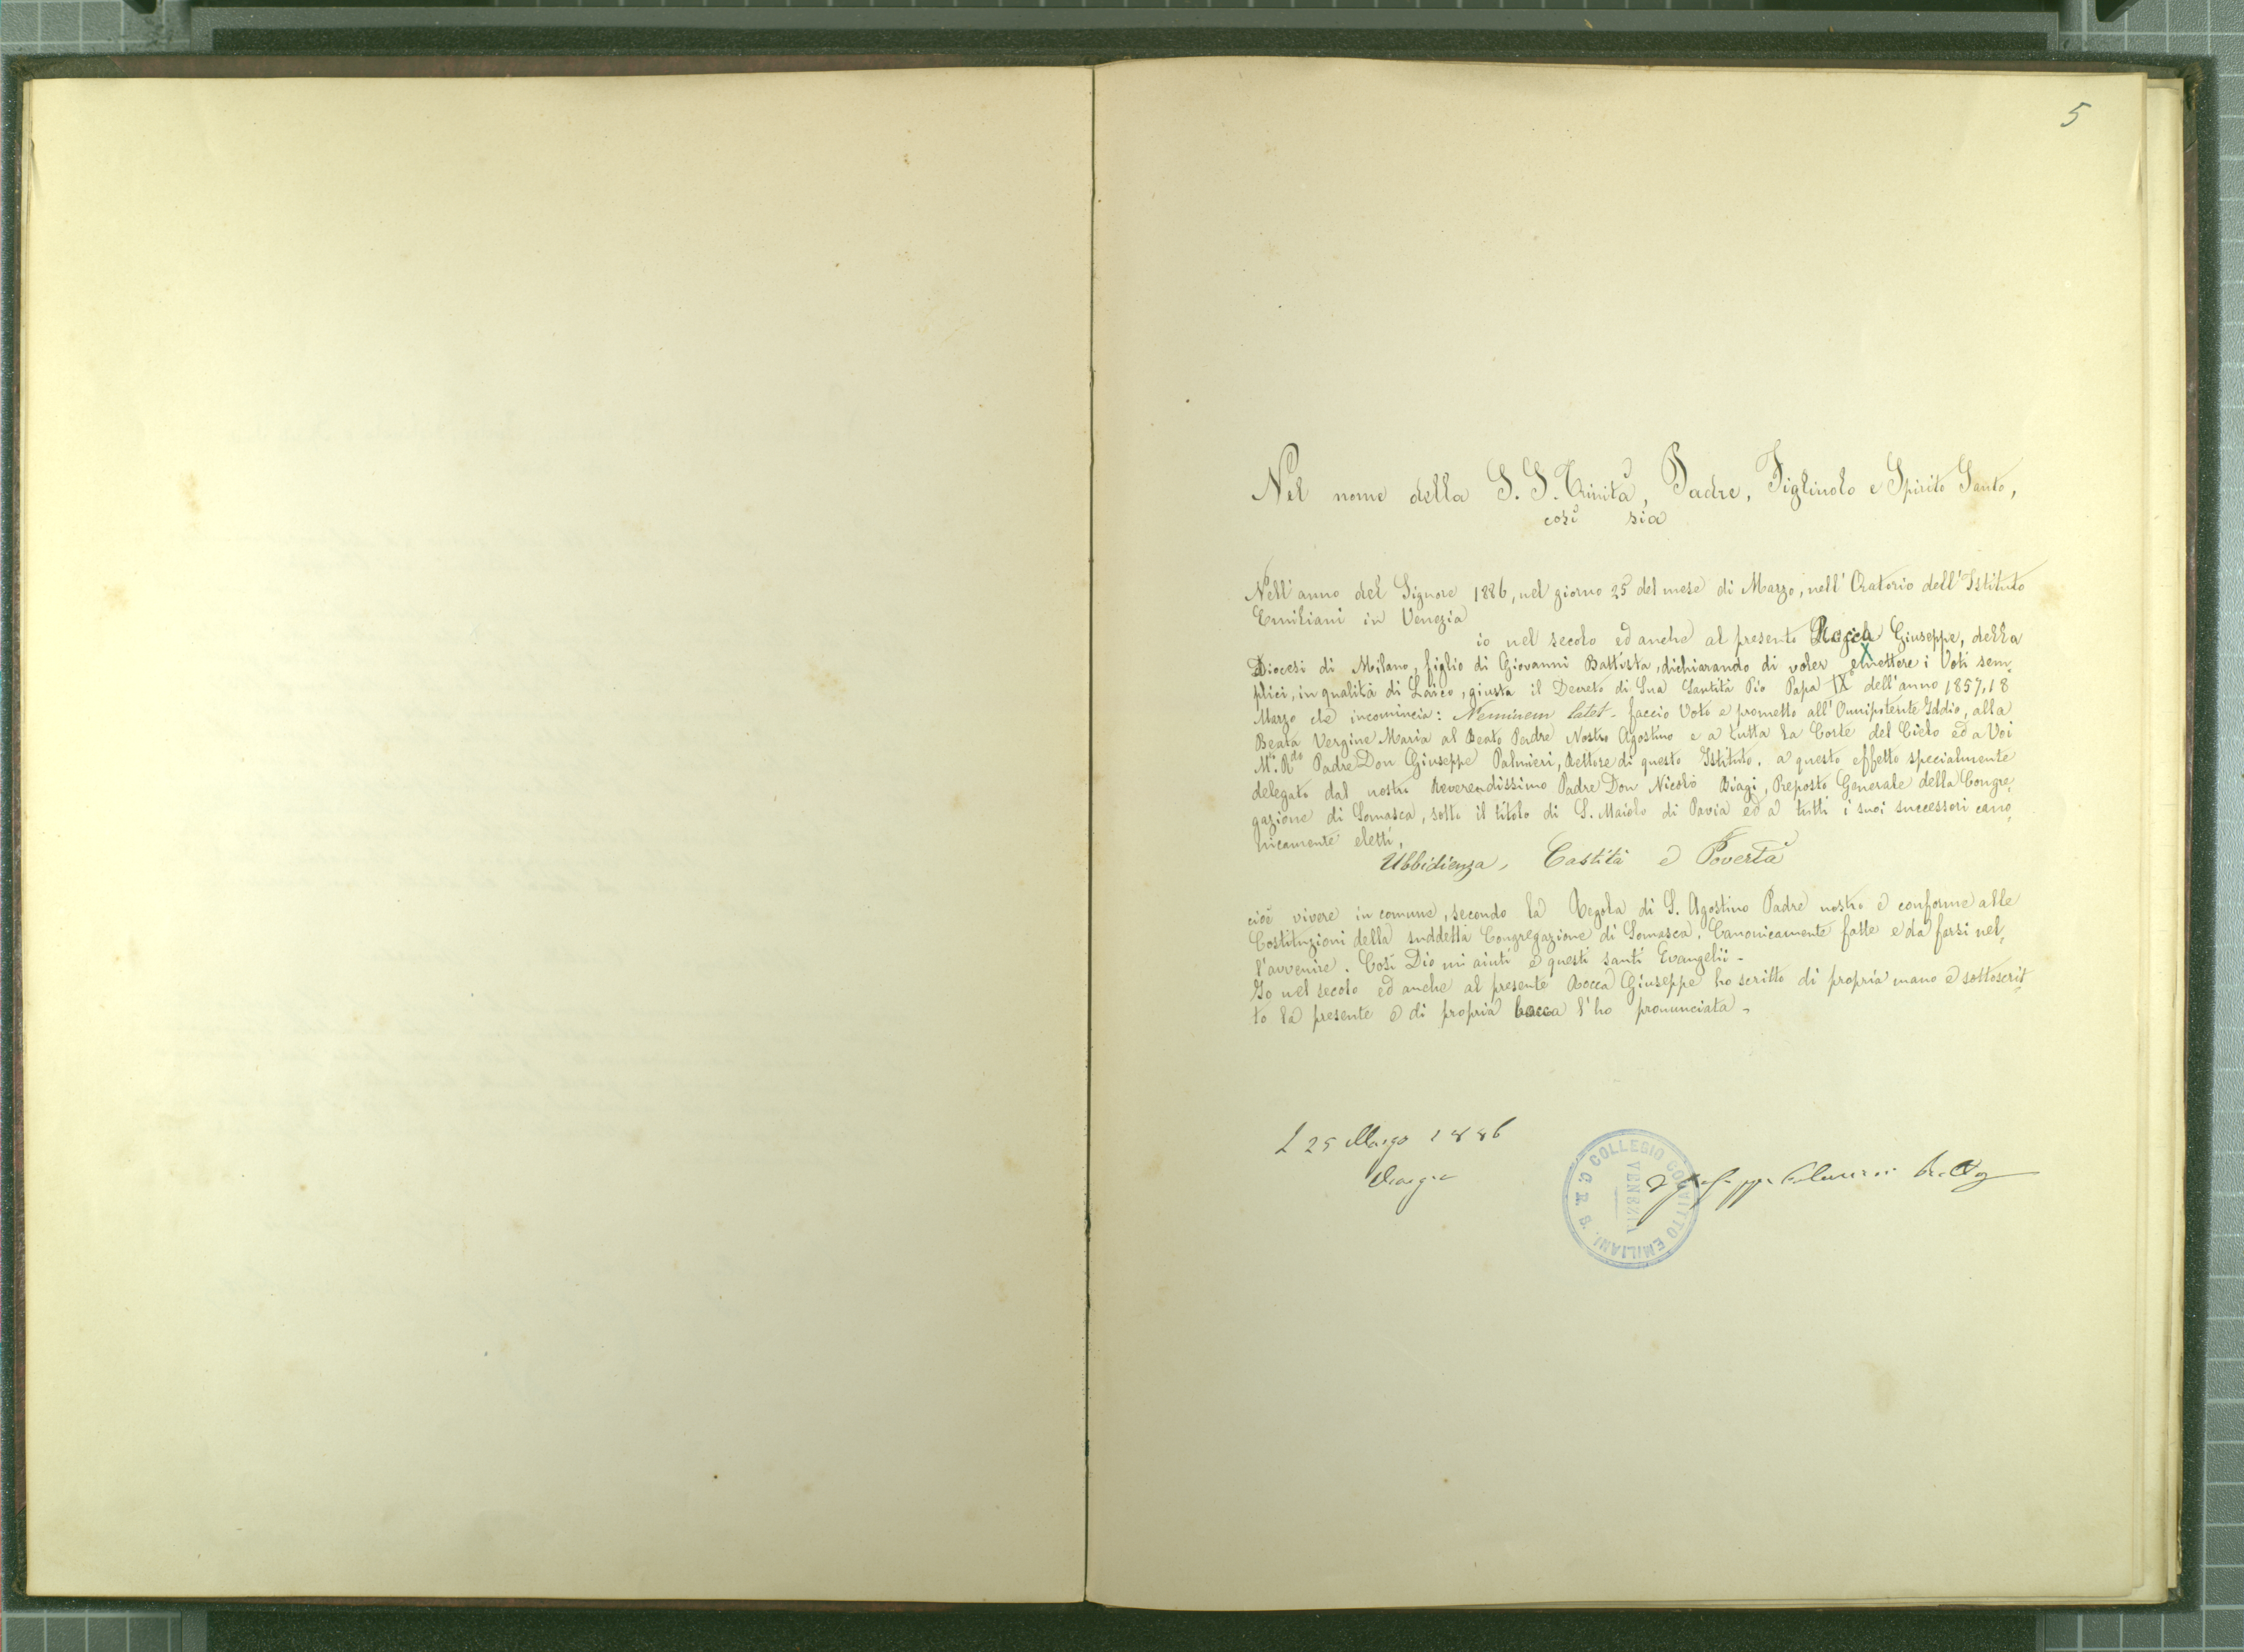 5
Nel nome della S. S. Trinità, Padre, Figliuolo e Spirito Santo,
così sia
Nell'anno del Signore 1886, nel giorno 25 del mese di Marzo, nell'Oratorio dell'Istituto
Emiliani in Venezia
io nel secolo ed anche al presente Rocca Giuseppe, della
X
Diocesi di Milano, figlio di Giovanni Battista, dichiarando di voler emettere i Voti sem,
plici, in qualità di Laico, giusta il Decreto di Sua Santità Pio Papa IX° dell'anno 1857, 18
Marzo che incomincia: Neminem latet - faccio Voto e prometto all'Omnipotente Iddio, alla
Beata Vergine Maria al Beato Padre Nostro Agostino e a tutta la Corte del Cielo ed a Voi
M.° R.do Padre Don Giuseppe Palmieri, Rettore di questo Istituto, a questo effetto specialmente
delegato dal nostro Reverendissimo Padre Don Nicolò Biagi, Preposto Generale della Congre,
gazione di Somasca, sotto il titolo di S. Maiolo di Pavia ed a tutti i suoi successori cano,
nicamente eletti,
Ubbidienza, Castità e Povertà
cioè vivere in comune, secondo la Regola di S. Agostino Padre nostro e conforme alle
Costituzioni della suddetta Congregazione di Somasca, Canonicamente fatte e da farsi nel,
l'avvenire. Così Dio mi aiuti e questi santi Evangelii -
Io nel secolo ed anche al presente Rocca Giuseppe ho scritto di propria mano e sottoscrit,
to la presente e di propria bocca l'ho pronunciata -
25 Marzo 1886
COLLEGIO CONVITTO EMILIANI. C. R. S.
VENEZIA